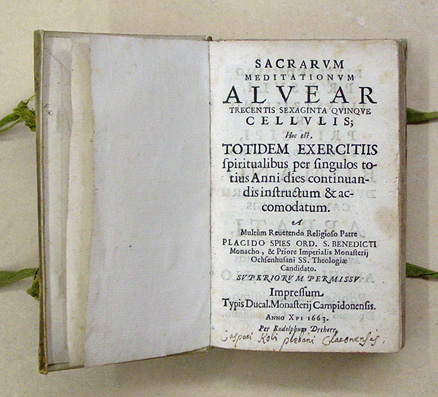 SACRARVM
MEDITATIONVM
ALVEAR
TRECENTIS SEXAGINTA QVINQVE
CELLVLIS;
Hoc est,
TOTIDEM EXERCITIIS
spiritualibus per singulos to-
tius Anni dies continuan-
dis instructum & ac-
comodatum.
A
Multùm Reverendo Religioso Patre
PLACIDO SPIES ORD. S. BENEDICTI
Monacho, & Priore Imperialis Monasterij
Ochsenhusani SS. Theologiæ
Candidato.
SVPERIORVM PERMISSV.
Impressum
Typis Ducal. Monasterij Campidonensis.
ANNO XPI 1663.
Per Rudolphum Dreherr
Caspari Kolb plebani